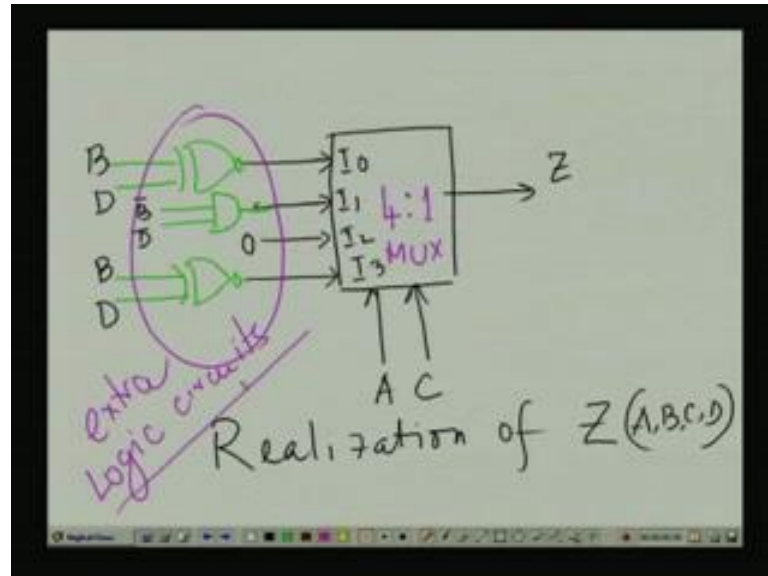 B
D
B̅
D̅
0
B
D
I0
I1
I2
I3
4:1
MUX
Z
A C
extra
logic circuits
Realization of Z(A,B,C,D)